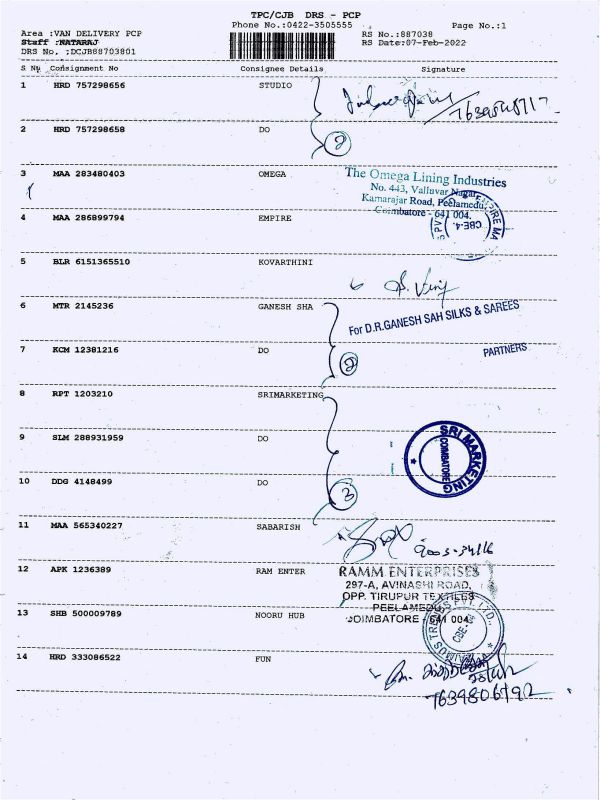 TPC/CJB DRS - PCP
Phone No.:0422-3505555 Page No.:1
Area :VAN DELIVERY PCP RS No.:887038
Staff :NATARAJ RS Date:07-Feb-2022
DRS No. :DCJB88703801
S No Consignment No Consignee Details Signature
1 HRD 757298656 STUDIO
2 HRD 757298658 DO
2
3 MAA 283480403 OMEGA
The Omega Lining Industries
No. 443, Valluvar Nagar,
Kamarajar Road, Peelamedu,
Coimbatore - 641 004.
4 MAA 286899794 EMPIRE
CBE-4
5 BLR 6151365510 KOVARTHINI
6 MTR 2145236 GANESH SHA
For D.R.GANESH SAH SILKS & SAREES
PARTNERS
7 KCM 12381216 DO
2
8 RPT 1203210 SRIMARKETING
9 SLM 288931959 DO
SRI MARKETING
COIMBATORE
10 DDG 4148499 DO
3
11 MAA 565340227 SABARISH
12 APK 1236389 RAM ENTER
RAMM ENTERPRISES
297-A, AVINASHI ROAD,
OPP. TIRUPUR TEXTILES
PEELAMEDU,
COIMBATORE - 641 004.
13 SHB 500009789 NOORU HUB
14 HRD 333086522 FUN
7639806492